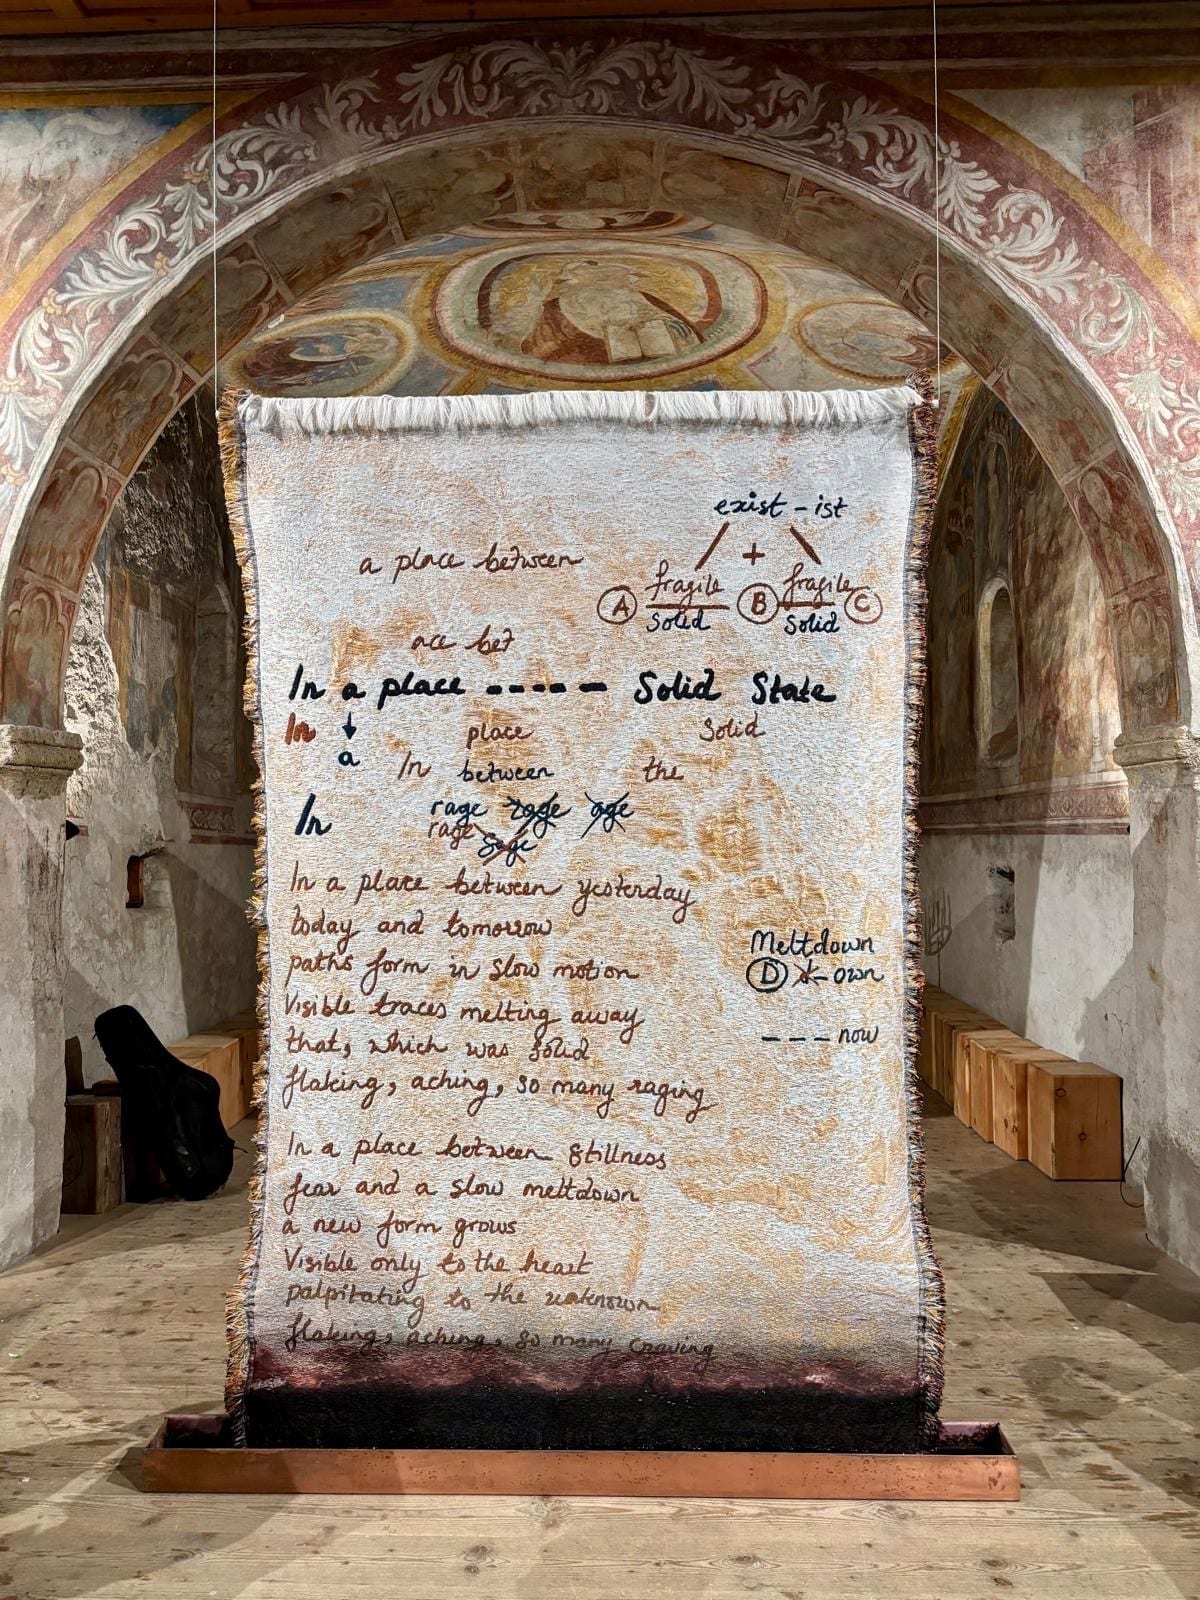 exist - ist
+
a place between
fragile fragile
A B C
Solid Solid
ace bet
In a place ----- Solid State
In place Solid
a In between the
In rage age
rage
In a place between yesterday
today and tomorrow
paths form in slow motion
Visible traces melting away
that, which was solid
flaking, aching, so many raging
Meltdown
D own
--- now
In a place between stillness
fear and a slow meltdown
a new form grows
Visible only to the heart
palpitating to the unknown
flaking, aching, so many craving